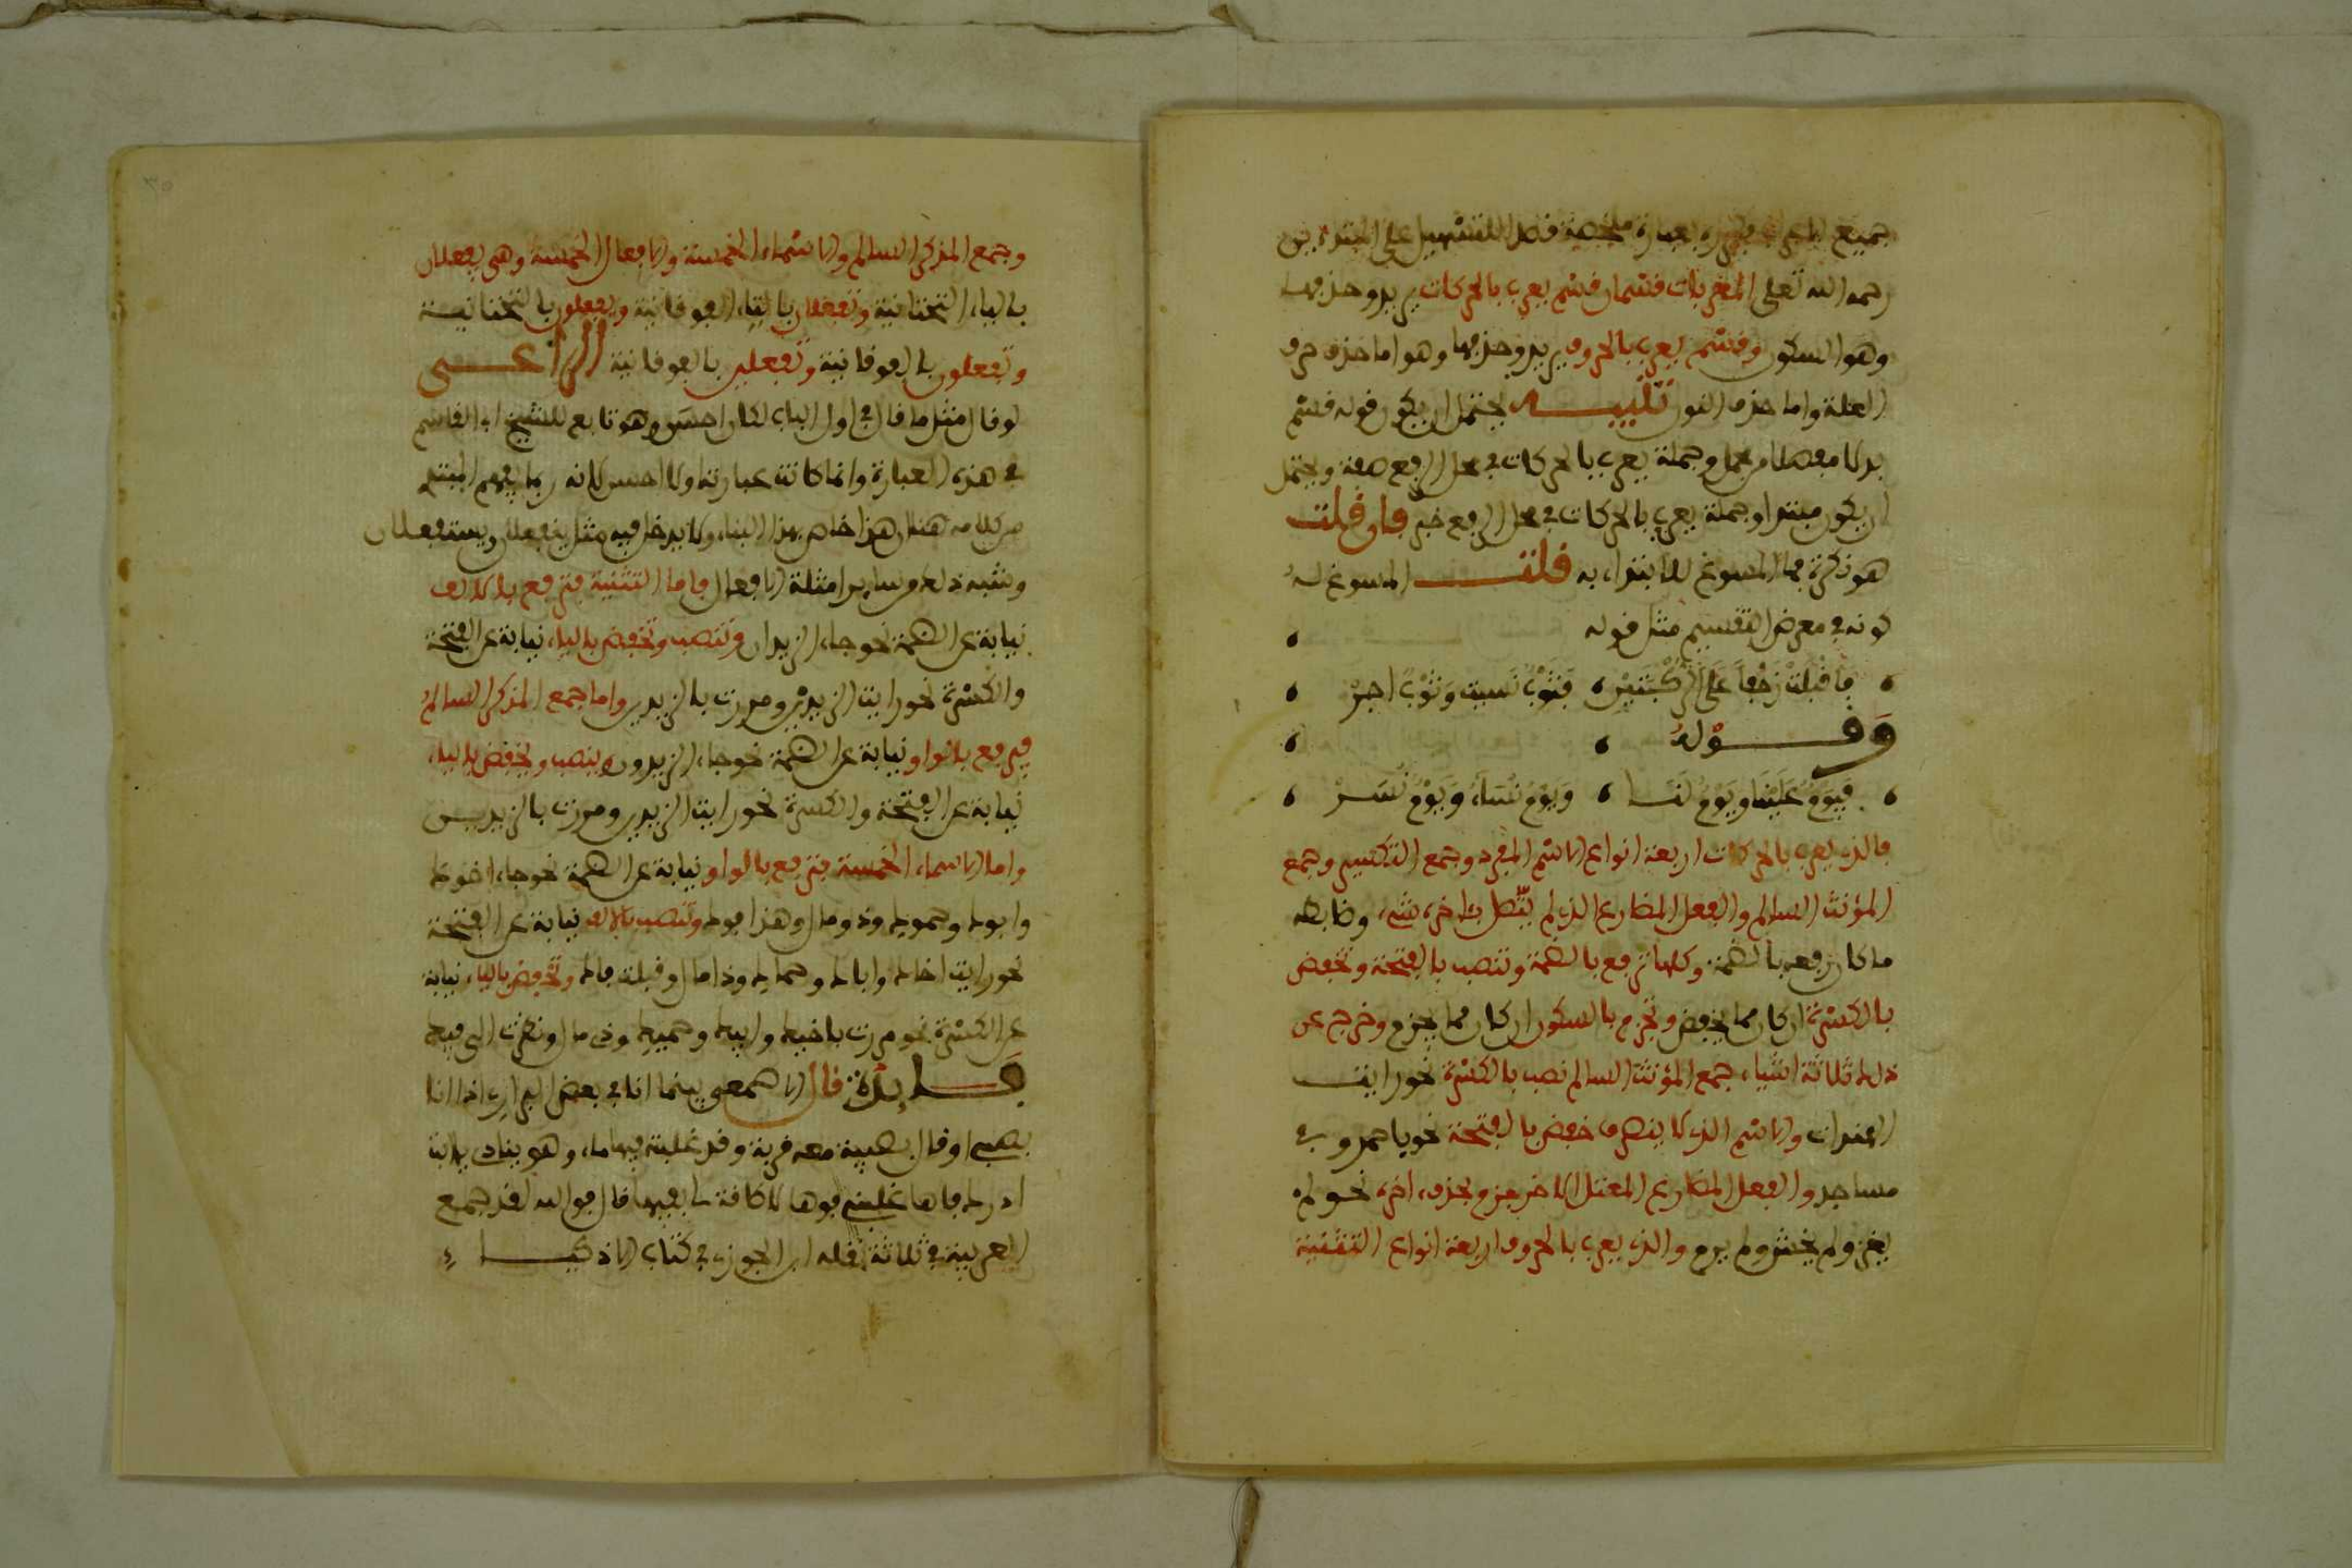 جميع ما عرب فيه بعبارة ملخصة قصد التسهيل على المبتدءين
رحمه الله تعلى المعربات قسمان قسم يعرب بالحركات يريد وحذفها
وهو السكون وقسم يعرب بالحروف يريد وحذفها وهو اما حذف حرف
العلة واما حذف النون تنبيـه يحتمل ان يكون قوله قسم
بدلا مفصلا من مجمل وجملة يعرب بالحركات في محل الرفع صفة ويحتمل
ان يكون مبتدا وجملة يعرب بالحركات في محل الرفع خبر فان قلت
هو نكرة فما المسوغ للابتداء به قلت المسوغ له
كونه في معرض التقسيم مثل قوله
فأقبلت زحفا على الركبتين فثوب نسيت وثوب اجر
وقــوله
فيوم علينا ويوم لنـا ويوم نساء ويوم نسر
فالذي يعرب بالحركات اربعة انواع الاسم المفرد وجمع التكسير وجمع
المؤنث السالم والفعل المضارع الذي لم يتصل بآخره شيء وضابطه
ما كان رفعه بالضمة وكلها ترفع بالضمة وتنصب بالفتحة وتخفض
بالكسرة ان كان مما يخفض وتجزم بالسكون ان كان مما يجزم وخرج عن
ذلك ثلاثة اشياء جمع المؤنث السالم نصب بالكسرة نحو رايت
الهندات والاسم الذي لا ينصرف خفض بالفتحة نحو باحمد وفي
مساجد والفعل المضارع المعتل الاخر يجزم بحذف اخره نحو لم
يغز ولم يخش ولم يرم والذي يعرب بالحروف اربعة انواع التثنية
وجمع المذكر السالم والاسماء الخمسة والافعال الخمسة وهي يفعلان
بالياء التحتانية وتفعلان بالتاء الفوقانية ويفعلون بالتحتانيـة
وتفعلون بالفوقانية وتفعلين بالفوقانية الراعـي
لو قال مثل ما قال في اول الباب لكان احسن وهو تابع للشيخ ابي القاسم
في هذه العبارة وانما كانت عبارته اولا احسن لانه ربما يفهم المبتدي
من كلامه هنا ان هذا خاص بهذا البناء ولا يدخل فيه مثل ينفعلان ويستفعلان
وشبه ذلك من ساير امثلة الافعال فاما التثنية فترفع بالالف
نيابة عن الضمة نحو جاء الزيدان وتنصب وتخفض بالياء نيابة عن الفتحة
والكسرة نحو رايت الزيدين ومررت بالزيدين واما جمع المذكر السالم
فيرفع بالواو نيابة عن الضمة نحو جاء الزيدون وينصب ويخفض بالياء
نيابة عن الفتحة والكسرة نحو رايت الزيدين ومررت بالزيديـن
واما الاسماء الخمسة فترفع بالواو نيابة عن الضمة نحو جاء اخوك
وابوك وحموك وذو مال وهذا فوك وتنصب بالالف نيابة عن الفتحة
نحو رايت اخاك واباك وحماك وذا مال وقبلت فاك وتخفض بالياء نيابة
عن الكسرة نحو مررت باخيك وابيك وحميك وذي مال ونظرت الى فيك
فـايدة قال الاصمعي بينما انا في بعض البراري اذا انا
بصبي او قال بصبية معه قربة وقد غلبته فيها ماء وهو ينادي يا ابت
ادرك فاها غلبني فوها لا طاقة لي بفيها قال فوالله لقد جمع
العربية في ثلاثة نقله ابن الجوزي في كتاب الاذكيـاء